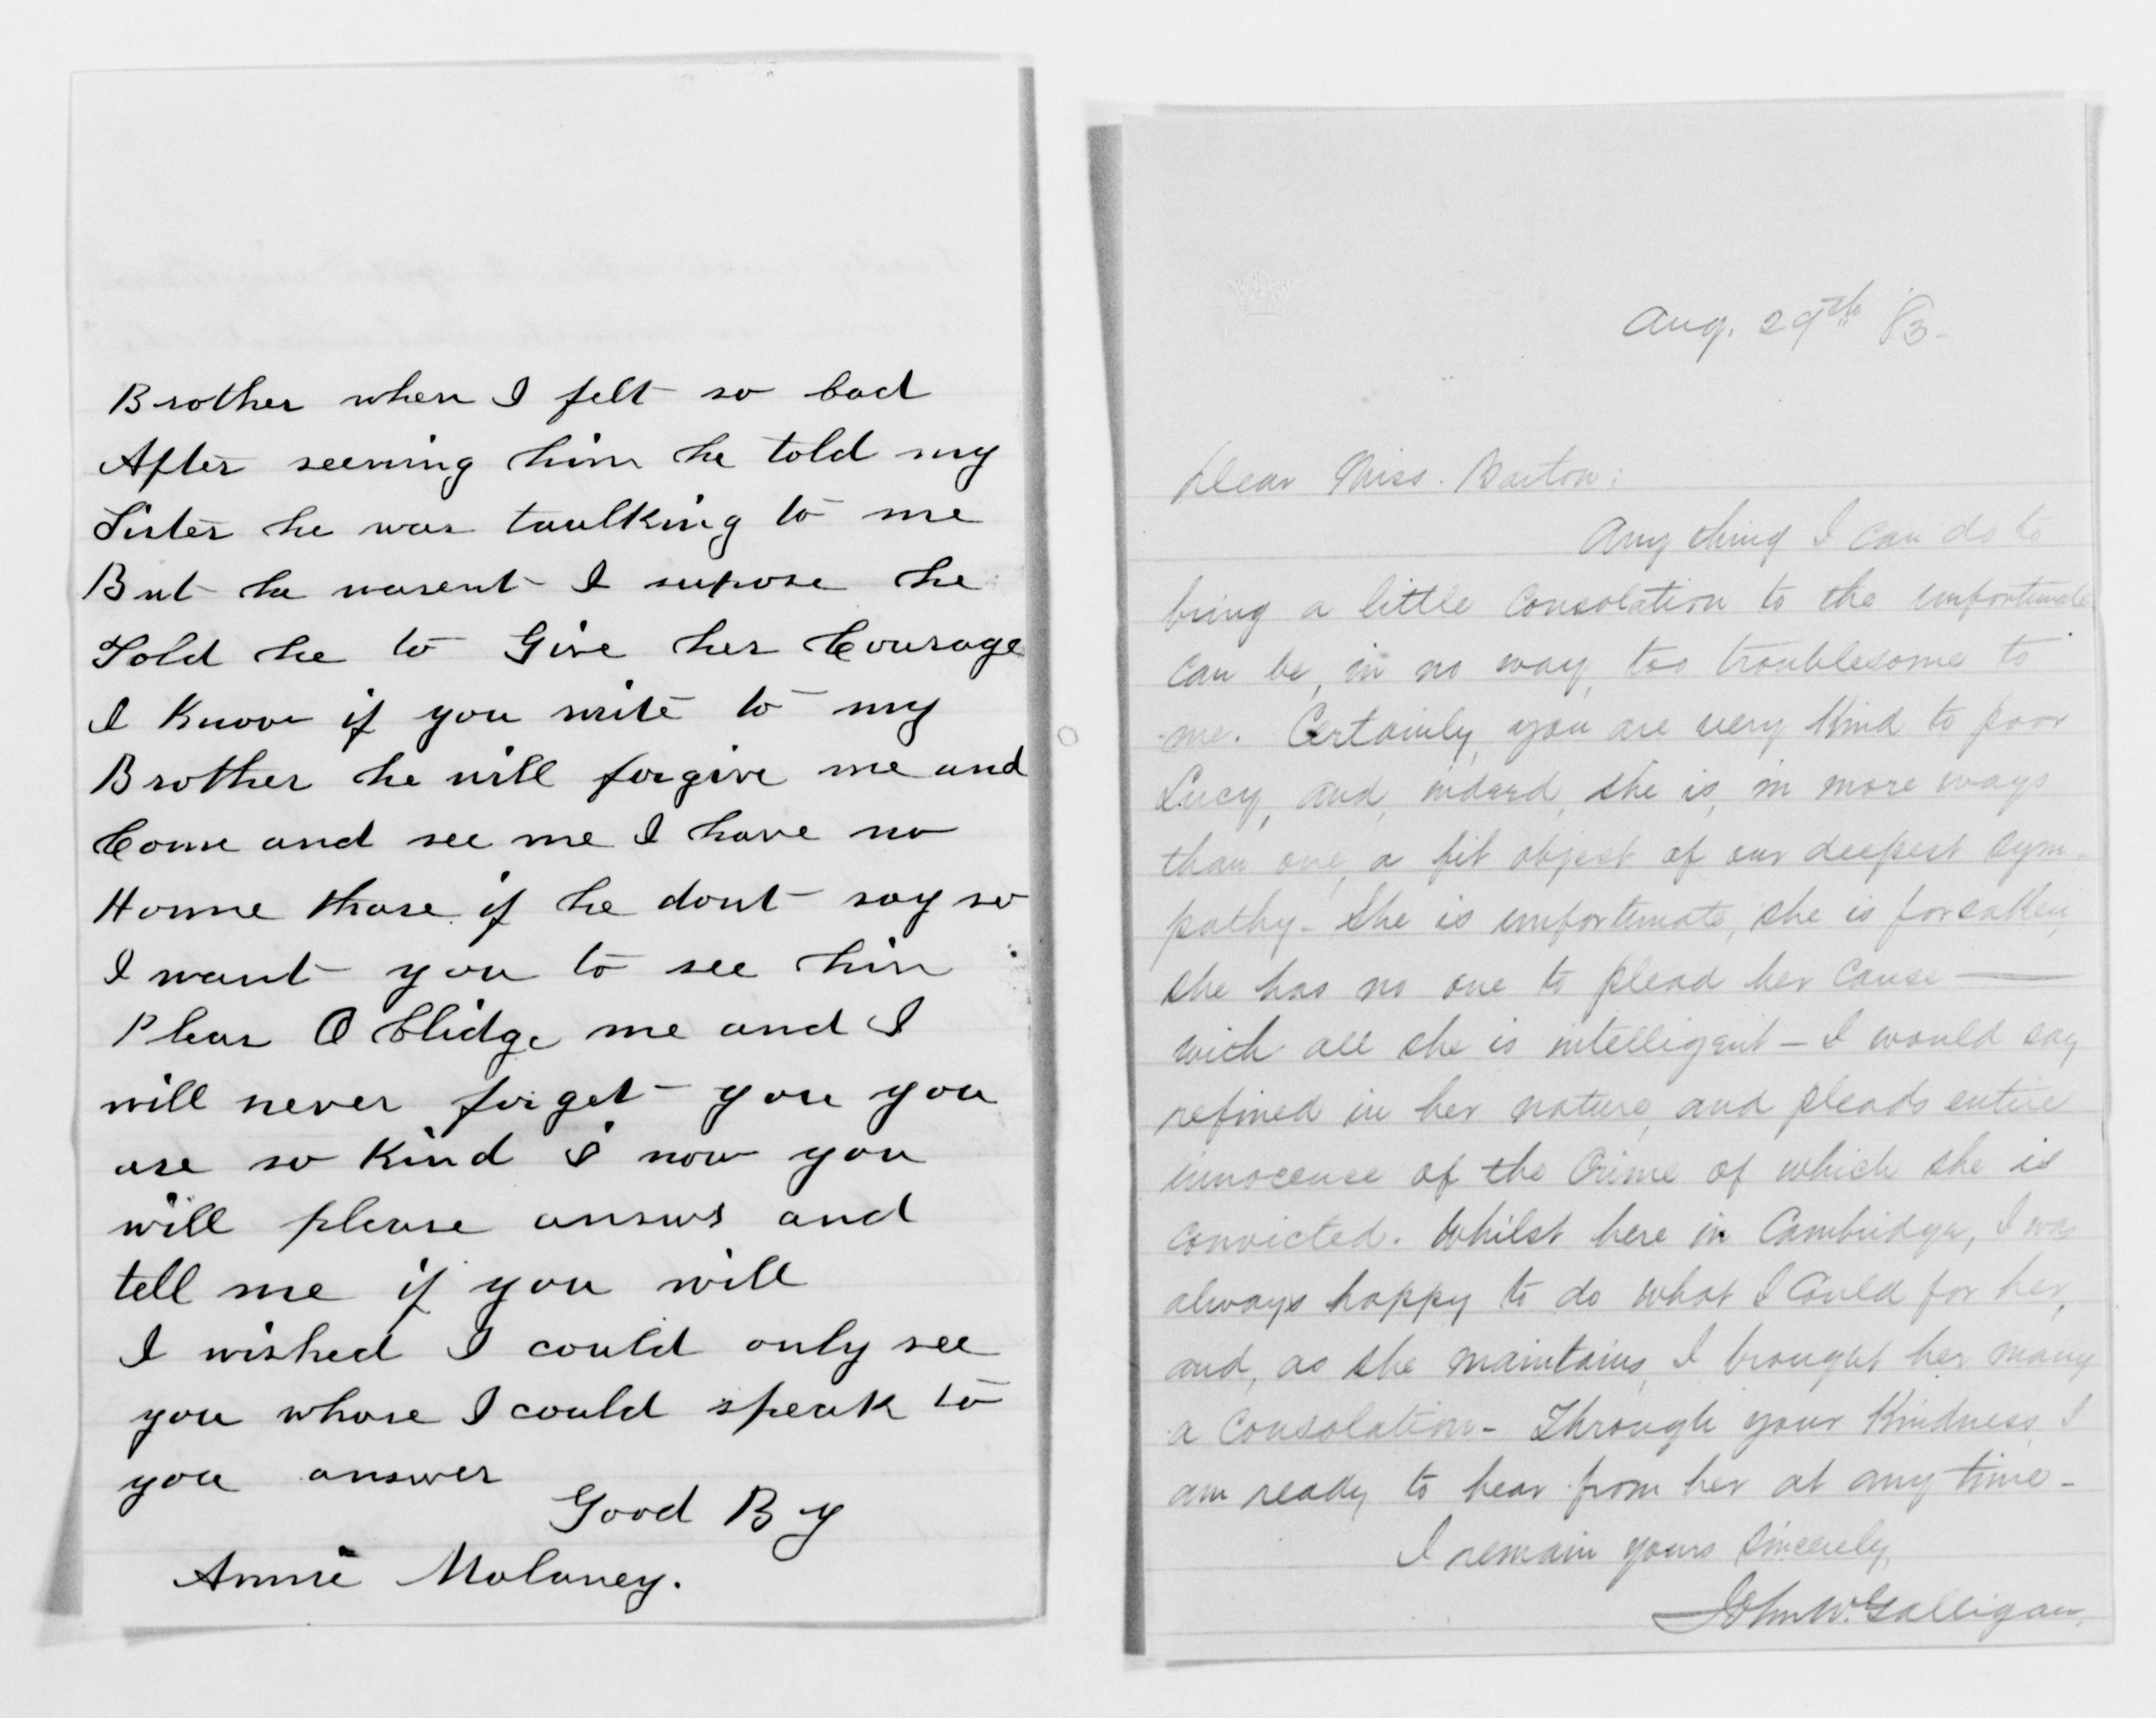 Brother when I felt so bad
After seening him he told my
Sister he was taulking to me
But he wasent I supose he
Told he to Give her Courage
I Know if you write to my
Brother he will forgive me and
Come and see me I have no
Home thare if he dont say so
I want you to see him
Pleas O blidge me and I
will never forget you you
are so Kind I now you
will please answs and
tell me if you will
I wished I could only see
you whare I could speak to
you answer
Good By
Annie Maloney.
Aug. 29th 83-
Dear Miss. Barton:
Any thing I can do to
bring a little Consolation to the unfortunate
can be, in no way, too troublesome to
me. Certainly, you are very Kind to poor
Lucy, and, indeed, she is, in more ways
than one, a fit object of our deepest sym-
pathy- She is unfortunate, she is forsaken,
she has no one to plead her cause —
with all she is intelligent - I would say
refined in her nature, and pleads entire
innocence of the Crime of which she is
convicted. Whilst here in Cambridge, I was
always happy to do what I could for her,
and, as she maintains, I brought her many
a Consolation- Through your Kindness, I
am ready to hear from her at any time-
I remain yours Sincerely,
John W. Galligan,